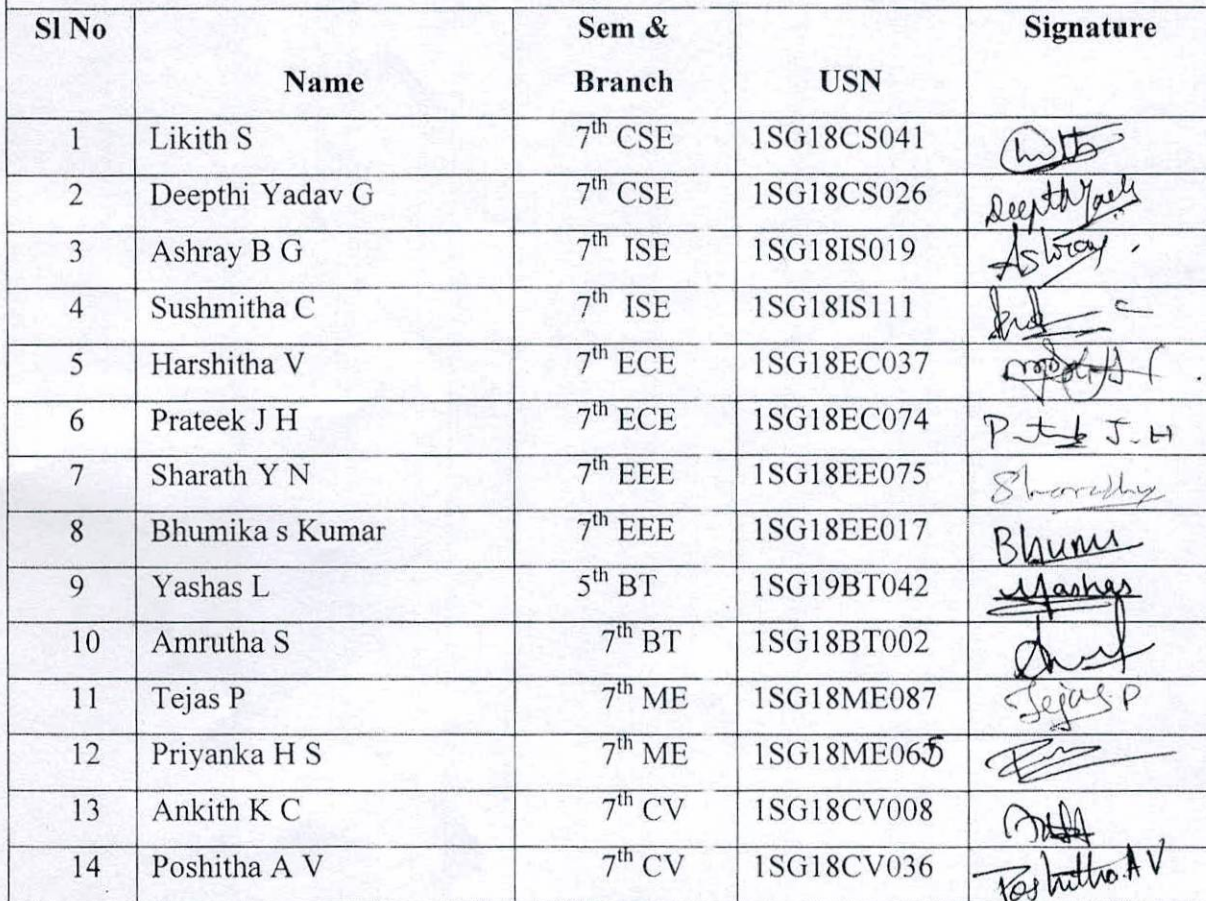 Sl No Name Sem & Branch USN Signature
1 Likith S 7th CSE 1SG18CS041
2 Deepthi Yadav G 7th CSE 1SG18CS026 DeepthiYadv
3 Ashray B G 7th ISE 1SG18IS019 Ashray.
4 Sushmitha C 7th ISE 1SG18IS111
5 Harshitha V 7th ECE 1SG18EC037
6 Prateek J H 7th ECE 1SG18EC074 J.H
7 Sharath Y N 7th EEE 1SG18EE075
8 Bhumika s Kumar 7th EEE 1SG18EE017 Bhumi
9 Yashas L 5th BT 1SG19BT042 Yashas
10 Amrutha S 7th BT 1SG18BT002
11 Tejas P 7th ME 1SG18ME087 Tejas.P
12 Priyanka H S 7th ME 1SG18ME065
13 Ankith K C 7th CV 1SG18CV008
14 Poshitha A V 7th CV 1SG18CV036 Poshitha.A V